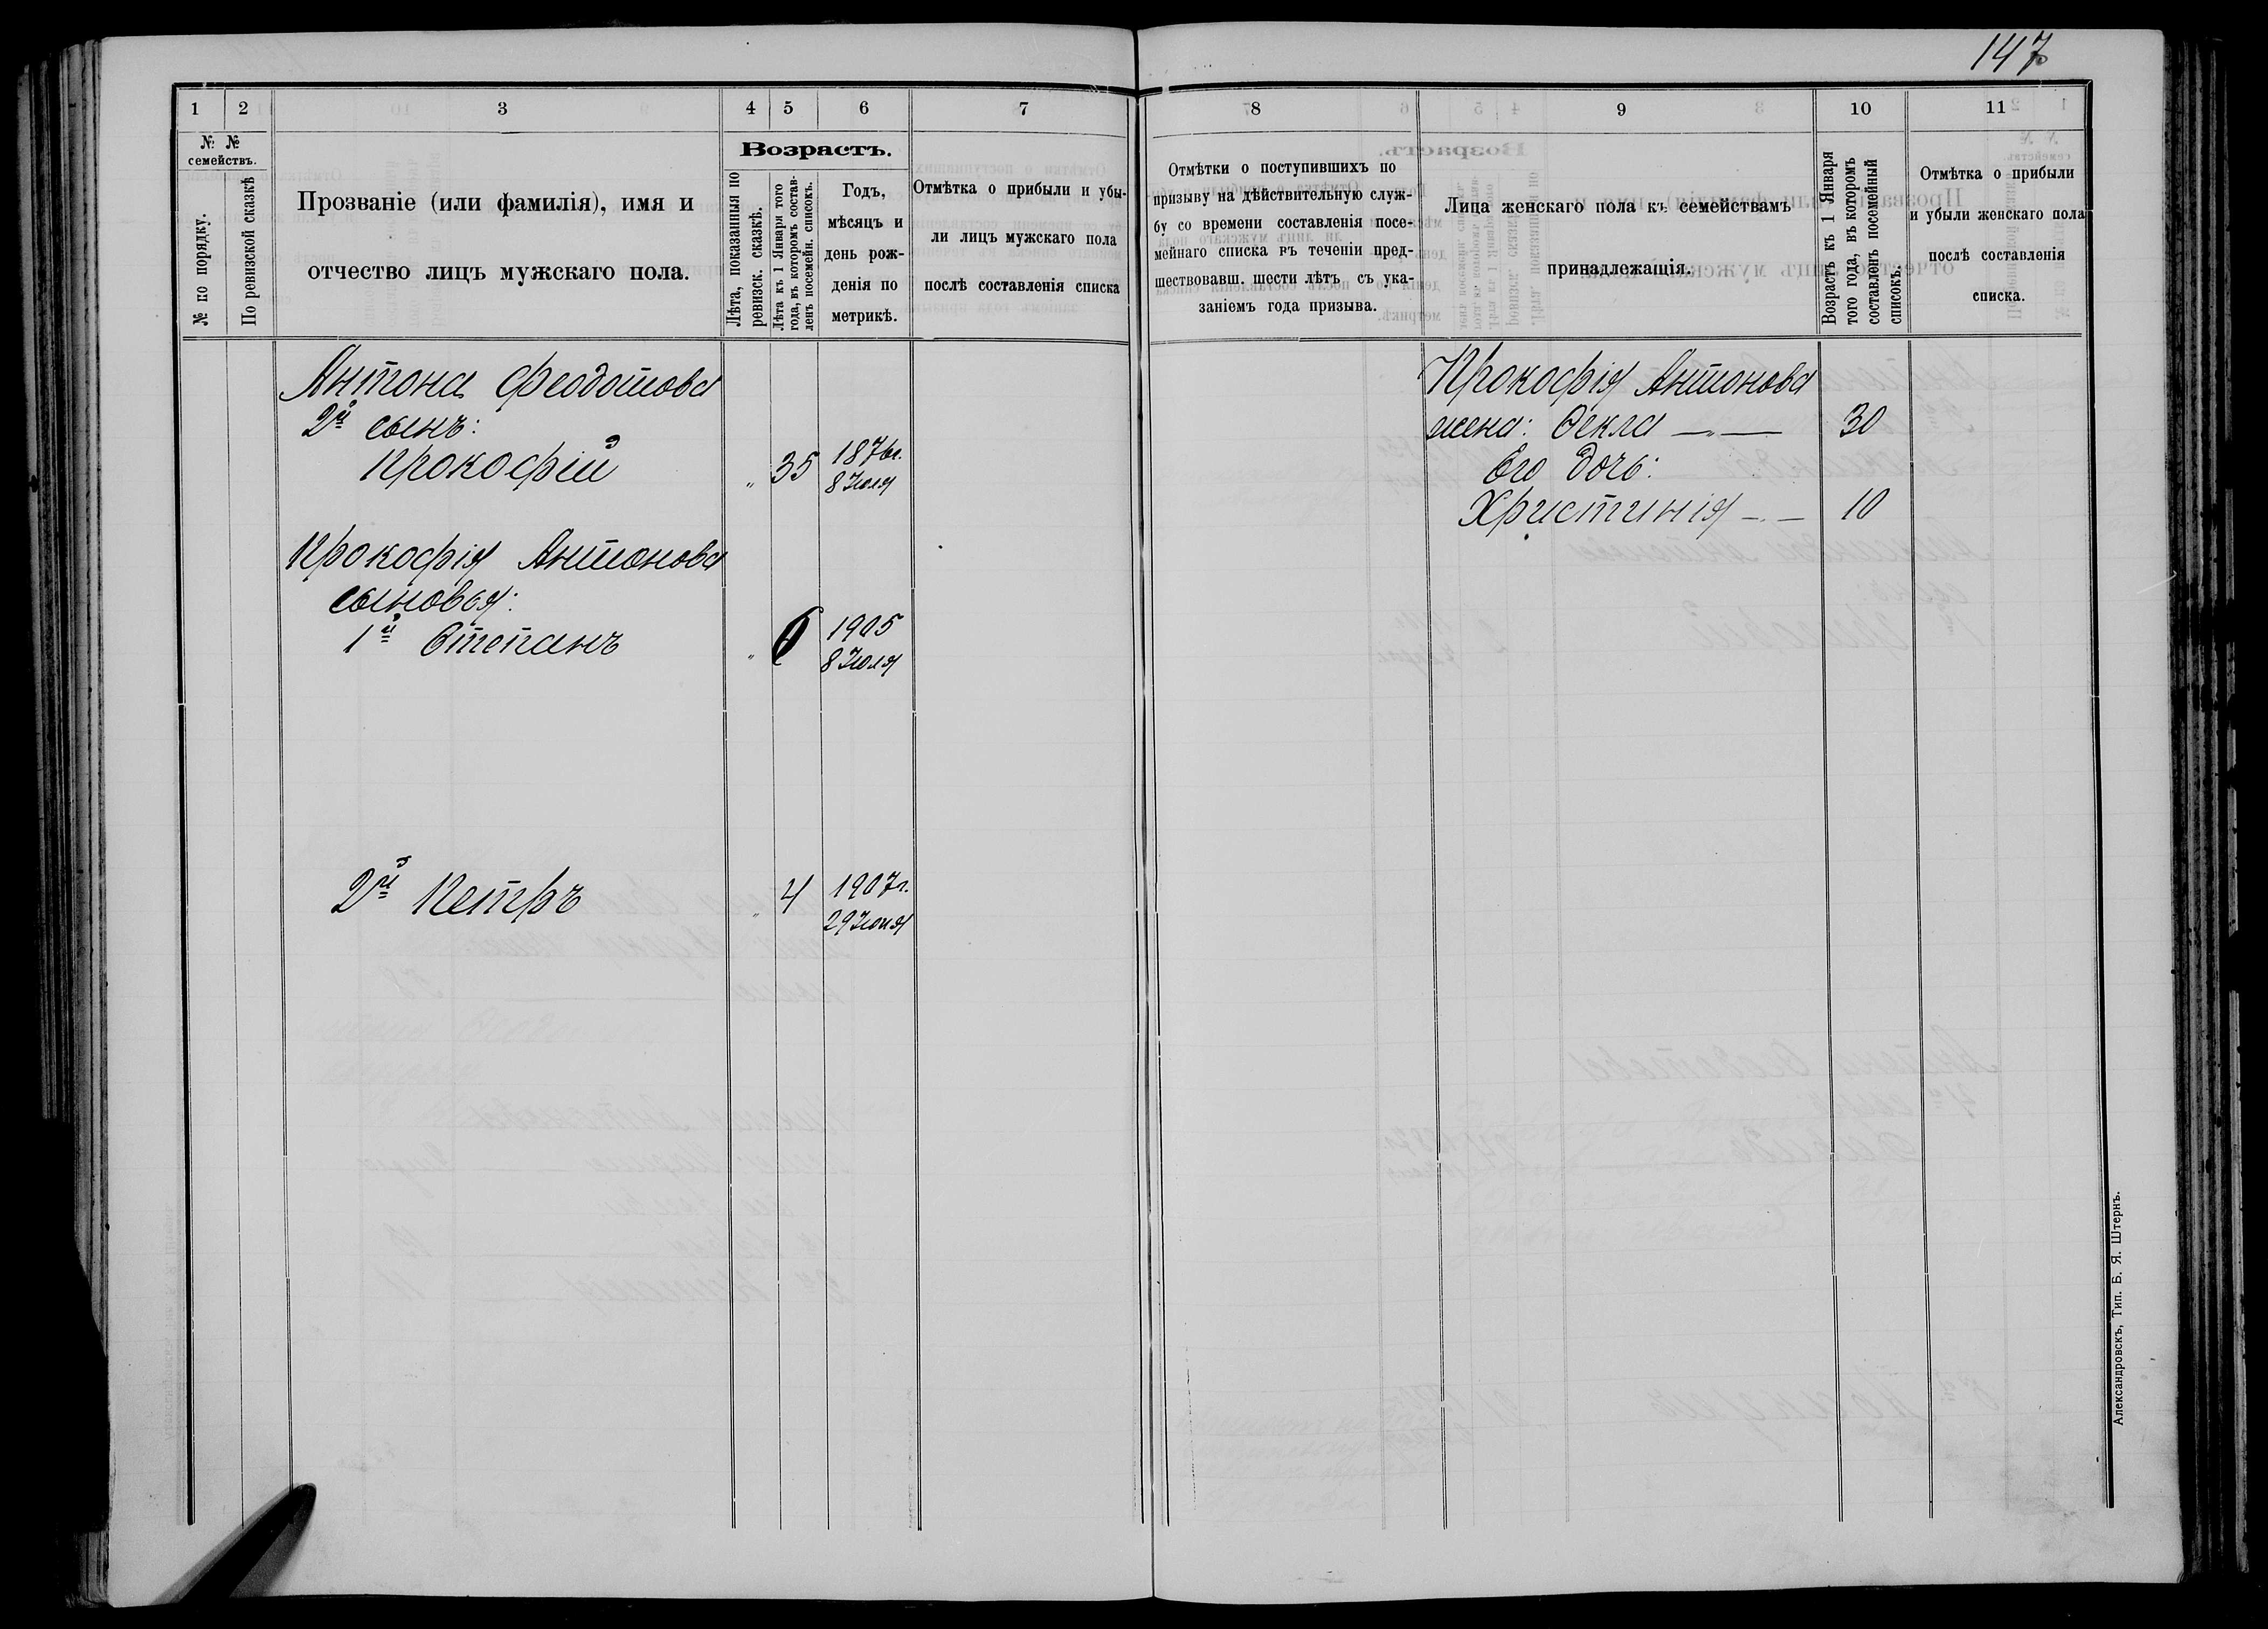 147
1 2 3 4 5 6 7 8 9 10 11
№ № семействъ.
№ по порядку.
По ревизской сказкѣ
Прозваніе (или фамилія), имя и
отчество лицъ мужскаго пола.
Возрастъ.
Лѣта, показанныя по
ревизск. сказкѣ.
Лѣта къ 1 Января того
года, въ которомъ состав-
ленъ посемейн. списокъ.
Годъ,
мѣсяцъ и
день рож-
денія по
метрикѣ.
Отмѣтка о прибыли и убы-
ли лицъ мужскаго пола
послѣ составленія списка
Отмѣтки о поступившихъ по
призыву на дѣйствительную служ-
бу со времени составленія посе-
мейнаго списка въ теченіи пред-
шествовавш. шести лѣтъ съ ука-
заніемъ года призыва.
Лица женскаго пола къ семействамъ
принадлежащія.
Возрастъ къ 1 Января
того года, въ которомъ
составленъ посемейный
списокъ.
Отмѣтка о прибыли
и убыли женскаго пола
послѣ составленія
списка.
Антона Феодотова
2й сынъ:
Прокофій " 35 1876г.
8 Іюля
Прокофія Антонова
сыновья:
1й Степанъ " 6 1905
8 Іюля
2й Петръ " 4 1907г.
29 Іюня
Прокофія Антонова
жена: Ѳекла —"— 30
Его дочь:
Христинія —"— 10
Александровскъ, Тип. Б. Я. Штернъ.